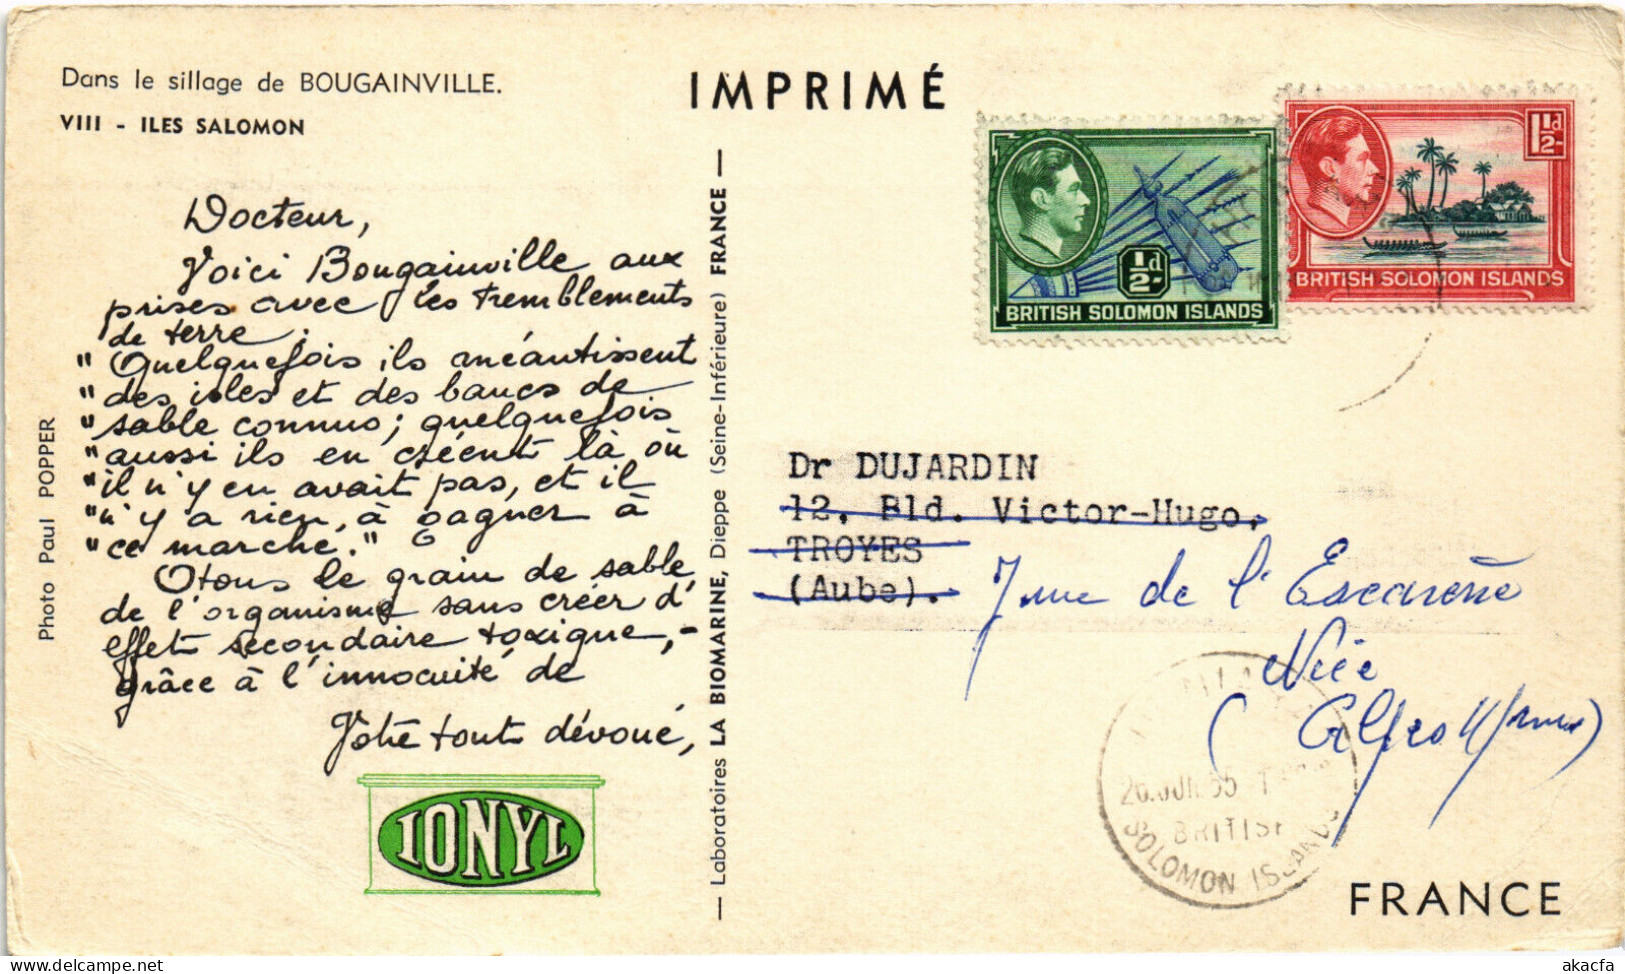 Dans le sillage de BOUGAINVILLE.
VIII - ILES SALOMON
IMPRIMÉ
Docteur,
Voici Bougainville aux
prises avec les tremblements
de terre.
"Quelquefois ils anéantissent
"des isles et des bancs de
"sable connus; quelquefois
"aussi ils en créent là où
"il n'y en avait pas, et il
"n'y a rien, à gagner à
"ce marché."
Otons le grain de sable
de l'organisme sans créer d'
effet secondaire toxique,-
grâce à l'innocuité de
Votre tout dévoué,
IONYL
Photo Paul POPPER
— Laboratoires LA BIOMARINE, Dieppe (Seine-Inférieure) FRANCE —
½d
BRITISH SOLOMON ISLANDS
1½d
BRITISH SOLOMON ISLANDS
Dr DUJARDIN
12, Bld. Victor-Hugo,
TROYES
(Aube).
7 rue de l'Escarène
Nice
(Alpes
BRITISH
SOLOMON ISLANDS
FRANCE
akacfa